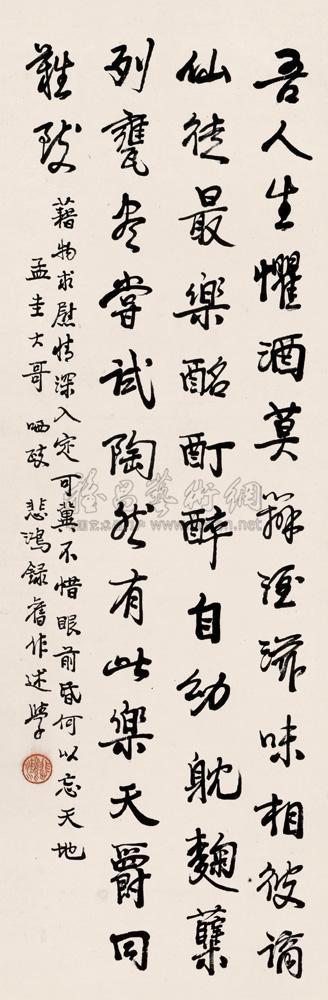 吾人生懼酒莫辨滋味相彼謫
仙徒最樂酩酊醉自幼躭麴蘖
列甕盡嘗試陶然有此樂天爵同
難致
藉物求慰情深入定可冀不惜眼前昏何以忘天地
孟圭大哥 哂政 悲鴻錄舊作述學
雅昌藝術網